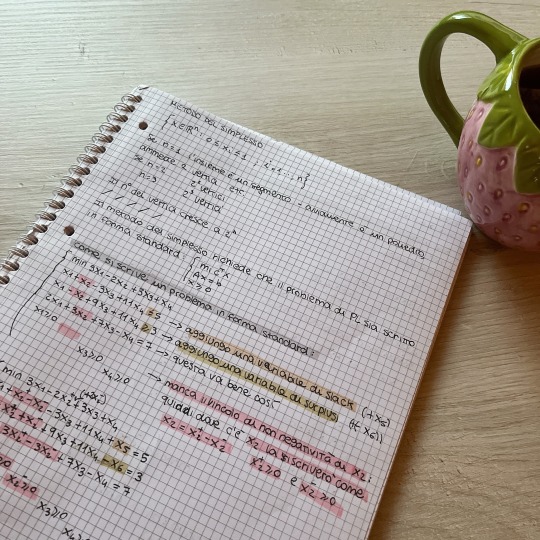 METODO DEL SIMPLESSO
{x∈ℝⁿ: 0≤xᵢ≤1, i=1,..,n}
Se n=1 l'insieme è un segmento - ovviamente è un poliedro
ammette 2 vertici
Se n=2 2² vertici
n=3 2³ vertici
Il n° dei vertici cresce a 2ⁿ
Il metodo del simplesso richiede che il problema di PL sia scritto
in forma standard { min cᵀx
Ax=b
x≥0
come si scrive un problema in forma standard:
min 3x₁-2x₂+3x₃+x₄
x₁-x₂-3x₃+11x₄≤5 → aggiungo una variabile di slack (+x₅)
x₁-x₂+9x₃+11x₄≥3 → aggiungo una variabile di surplus (-x₆)
2x₁+3x₂+7x₃-x₄=7 → questa va bene così
x₁≥0
x₃≥0
x₄≥0
→ manca il vincolo di non negatività di x₂:
quindi dove c'è x₂ la si scriverà come
x₂=x₂⁺-x₂⁻ x₂⁺≥0 e x₂⁻≥0
min 3x₁-2x₂+3x₃+x₄
-3x₃+11x₄+x₅=5
+9x₃+11x₄-x₆=3
+7x₃-x₄=7
x₂⁻≥0
x₃≥0